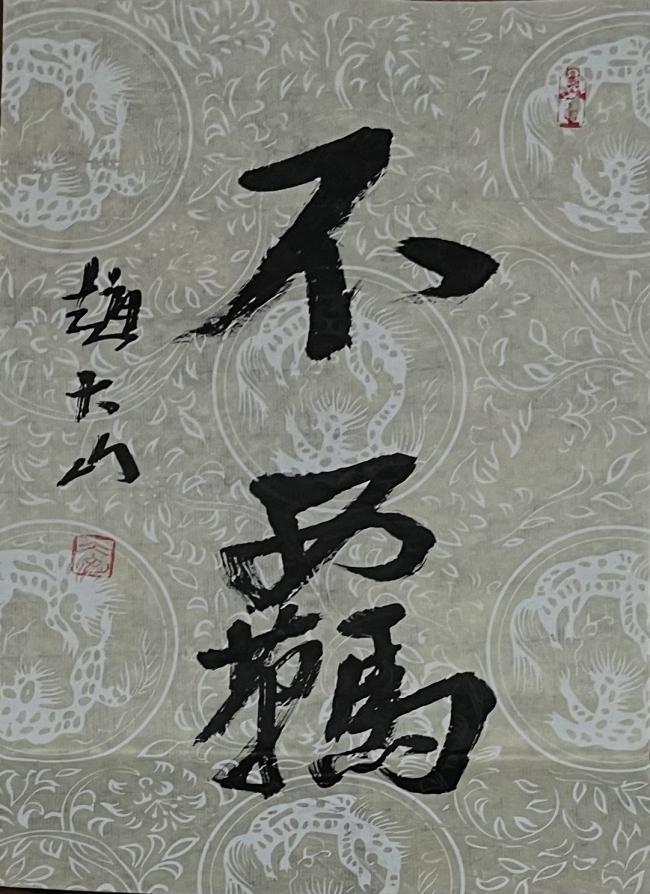 不羈
趙大山